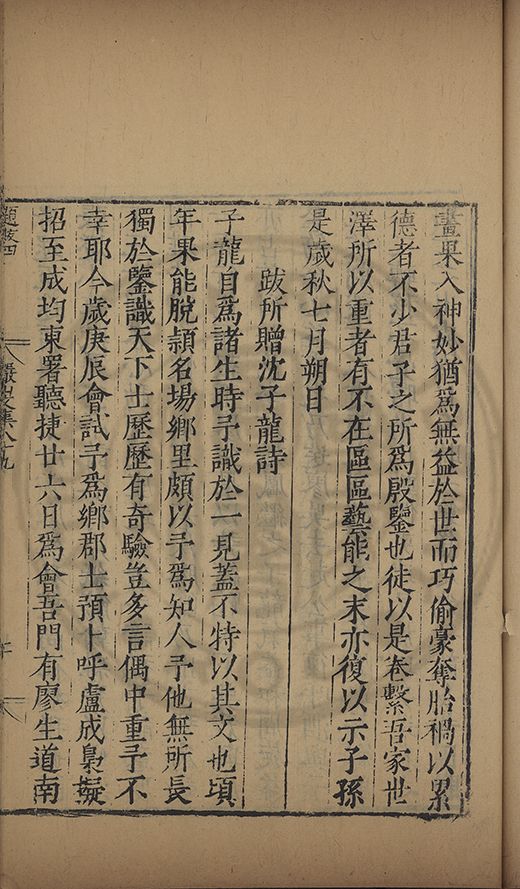 畫果入神妙猶爲無益於世而巧偷豪奪胎禍以累
德者不少君子之所爲殷鑒也徒以是卷繫吾家世
澤所以重者有不在區區藝能之末亦復以示子孫
是歲秋七月朔日
跋所贈沈子龍詩
子龍自爲諸生時予識於一見蓋不特以其文也頃
年果能脫頴名場鄉里頗以予爲知人予他無所長
獨於鑒識天下士歷歷有奇驗豈多言偶中重予不
幸耶今歲庚辰會試予爲鄉郡士預卜呼盧成梟擬
招至成均東署聽捷廿六日爲會吾門有廖生道南
題跋四